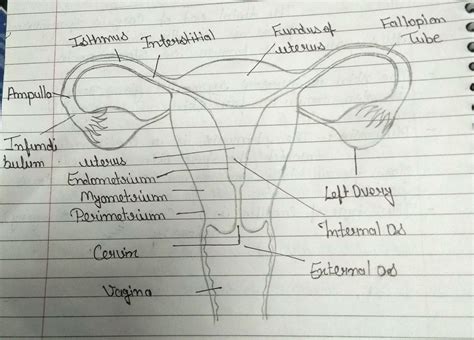 Isthmus
Interstitial
Fundus of
uterus
Fallopian
Tube
Ampulla
Infundi
bulum
uterus
Endometrium
Myometrium
Perimetrium
Cervix
Vagina
Left Overy
Internal Os
External Os